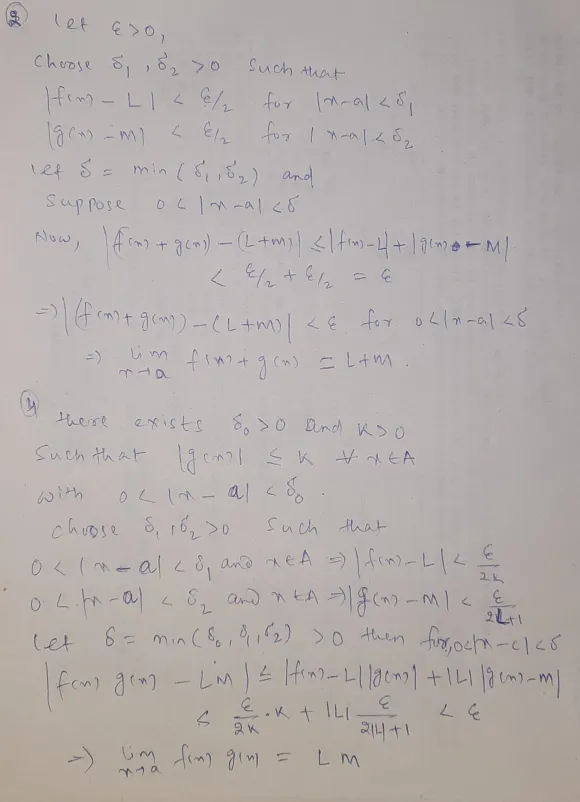 ② Let ε>0,
Choose δ₁, δ₂ >0 such that
|f(x) - L| < ε/2 for |x-a| < δ₁
|g(x) - M| < ε/2 for |x-a| < δ₂
let δ = min(δ₁, δ₂) and
suppose 0 < |x-a| < δ
Now, |f(x) + g(x) - (L+M)| ≤ |f(x)-L| + |g(x) - M|
< ε/2 + ε/2 = ε
=> |(f(x) + g(x)) - (L+M)| < ε for 0<|x-a|<δ
=> lim x→a f(x) + g(x) = L+M.
④ there exists δ₀ >0 and K>0
Such that |g(x)| ≤ K ∀ x∈A
with 0 < |x - a| < δ₀.
choose δ₁, δ₂ >0 such that
0 < |x - a| < δ₁ and x∈A => |f(x) - L| < ε/2K
0 < |x-a| < δ₂ and x∈A => |g(x) - M| < ε/2L+1
let δ = min(δ₀, δ₁, δ₂) >0 then for, 0<|x-c|<δ
|f(x) g(x) - LM| ≤ |f(x)-L||g(x)| + |L||g(x)-M|
≤ ε/2K . K + |L| ε/2|L|+1 < ε
=> lim x→a f(x) g(x) = LM